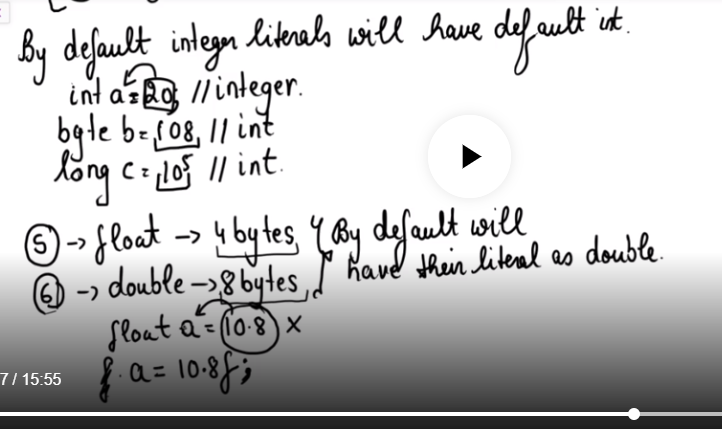 By default integer literals will have default int.
int a=20; //integer.
byte b=108, // int
long c=105; // int.
(5) -> float -> 4 bytes } By default will
have their literal as double.
(6) -> double -> 8 bytes,
float a = 10.8 x
f. a = 10.8f;
7 / 15:55